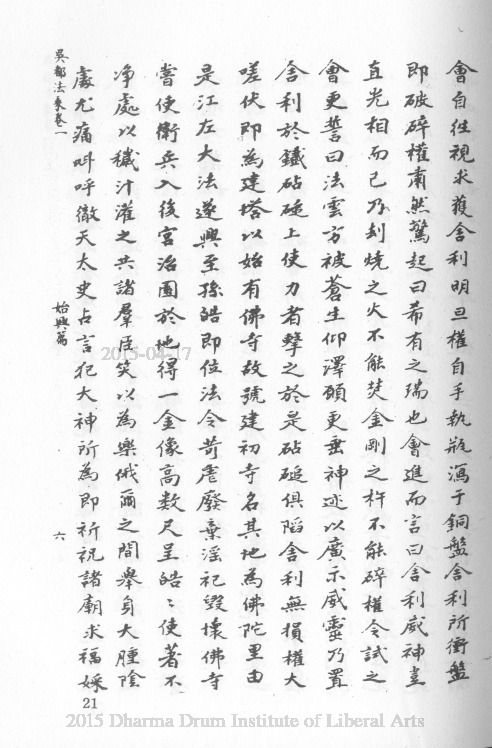 會自往視求獲舍利明旦權自手執瓶瀉于銅盤舍利所衝盤
即破碎權肅然驚起曰希有之瑞也會進而言曰舍利威神豈
直光相而已乃刦燒之火不能焚金剛之杵不能碎權令試之
會更誓曰法雲方被蒼生仰澤願更垂神迹以廣示威靈乃置
舍利於鐵砧磓上使力者擊之於是砧磓俱陷舍利無損權大
嗟伏即為建塔以始有佛寺故號建初寺名其地為佛陀里由
是江左大法遂興至孫皓即位法令苛虐廢棄淫祀毀壞佛寺
嘗使衛兵入後宮治園於地得一金像高數尺呈皓〻使著不
净處以穢汁灌之共諸羣臣笑以為樂俄爾之間舉身大腫陰
處尤痛叫呼徹天太史占言犯大神所為即祈祝諸廟求福婇
吳都法乘卷一
始興篇
六
21
2015-04-17
2015 Dharma Drum Institute of Liberal Arts